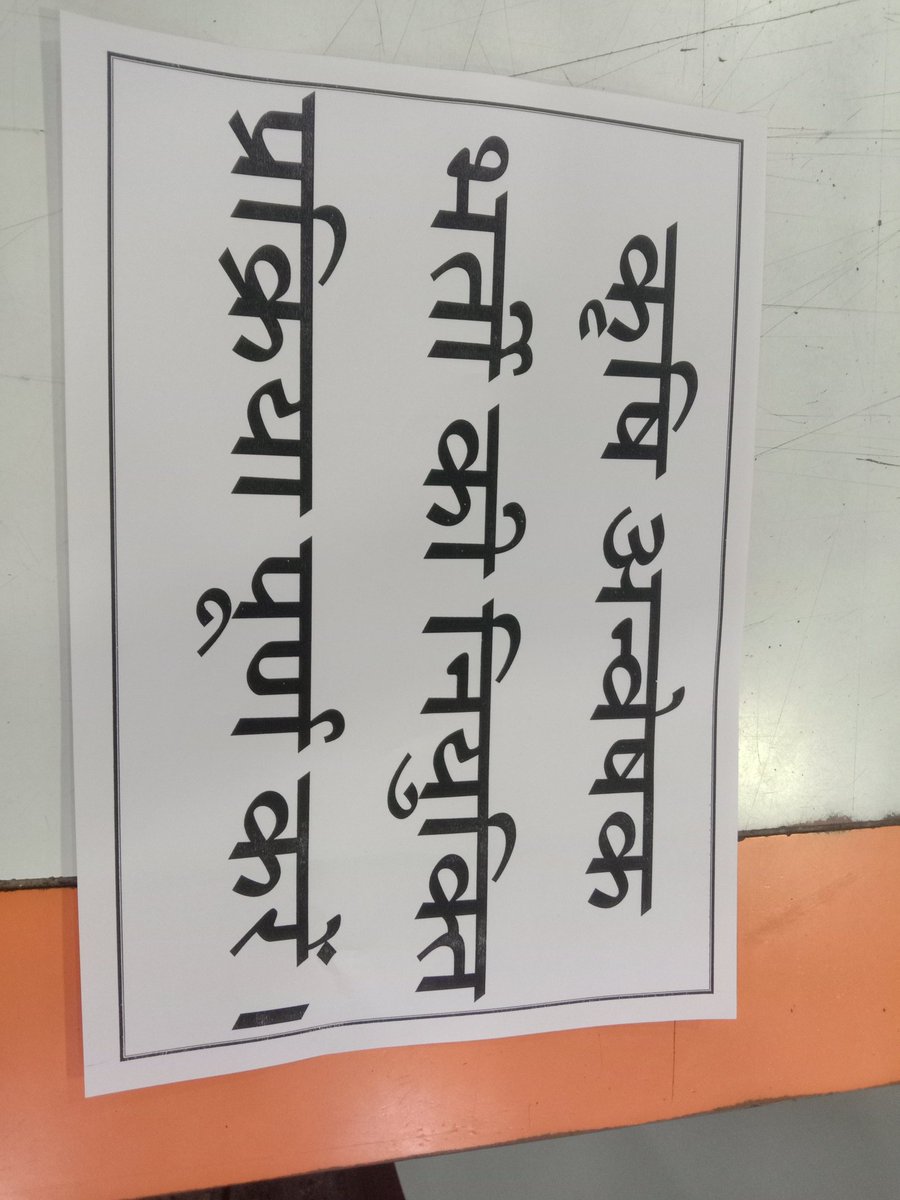 कृषि अन्वेषक
भर्ती की नियुक्ति
प्रक्रिया पूर्ण करें ।